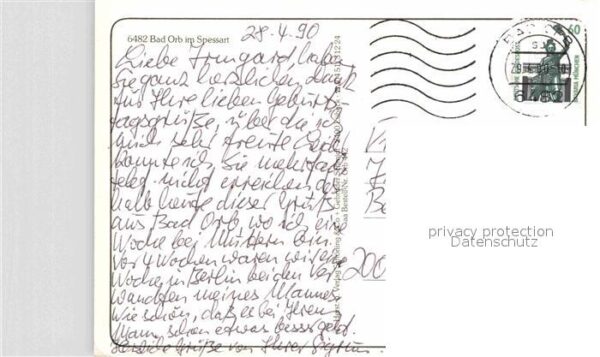 28.4.90
6482 Bad Orb im Spessart
Liebe Irmgard, haben
Sie ganz herzlichen Dank
für Ihre lieben Geburts-
tagsgrüße, über die ich
mich sehr freute. Leider
konnte ich Sie mehrfach
telef. nicht erreichen, des-
halb heute dieser Gruß
aus Bad Orb, wo ich eine
Woche bei Muttern bin.
Vor 4 Wochen waren wir eine
Woche in Berlin bei den Ver-
wandten meines Mannes.
Wie schön, daß es bei Ihrem
Mann schon etwas besser geht.
Herzliche Grüße von Ihrer Sigrun
60
6482
200
privacy protection
Datenschutz